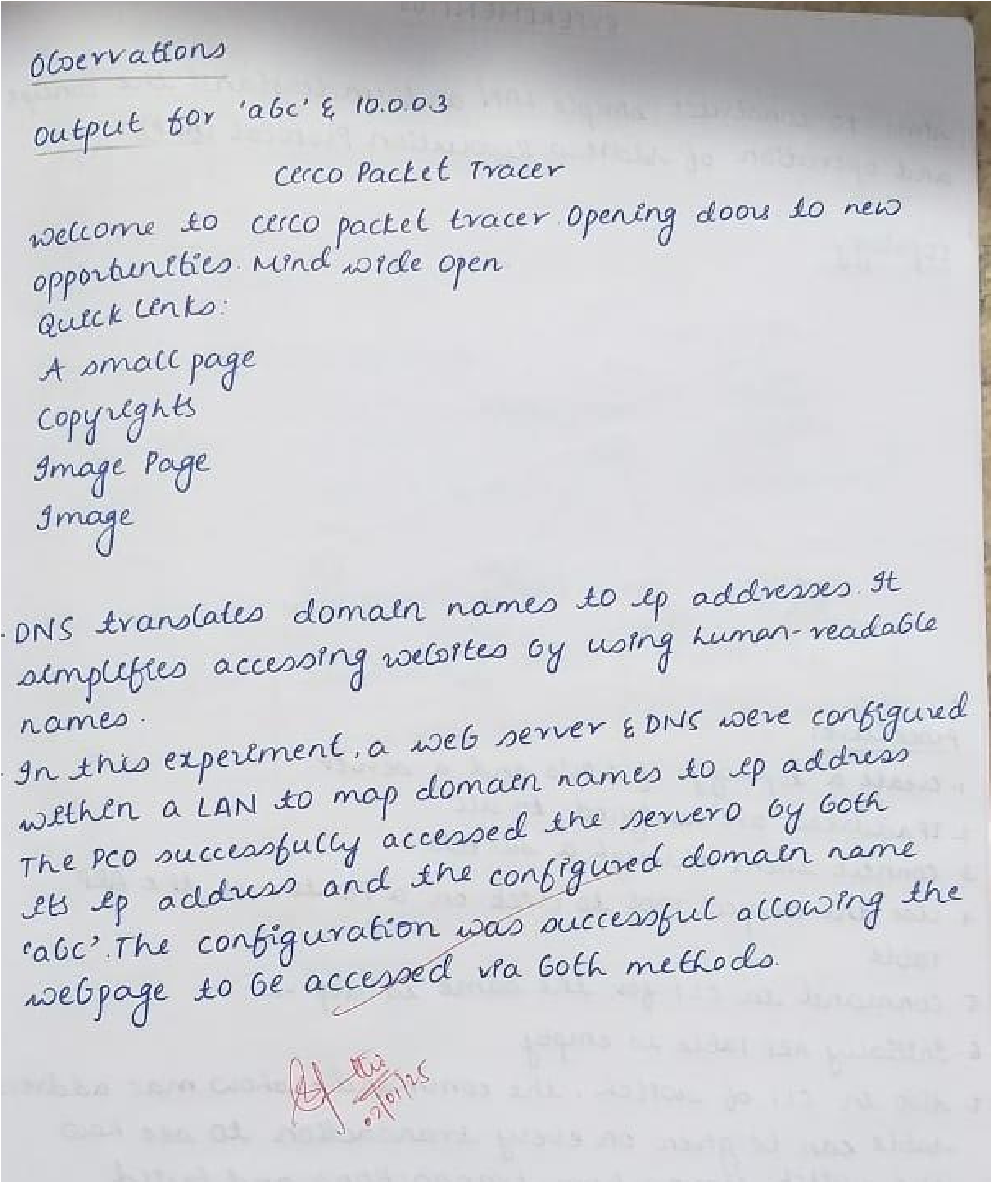 Observations
Output for 'abc' & 10.0.0.3
Cisco Packet Tracer
Welcome to cisco packet tracer. Opening doors to new
opportunities. Mind wide open
Quick links:
A small page
Copyrights
Image Page
Image
· DNS translates domain names to ip addresses. It
simplifies accessing websites by using human-readable
names.
· In this experiment, a web server & DNS were configured
within a LAN to map domain names to ip address
The PC0 successfully accessed the server0 by both
its ip address and the configured domain name
'abc'. The configuration was successful allowing the
webpage to be accessed via both methods.
02/01/25